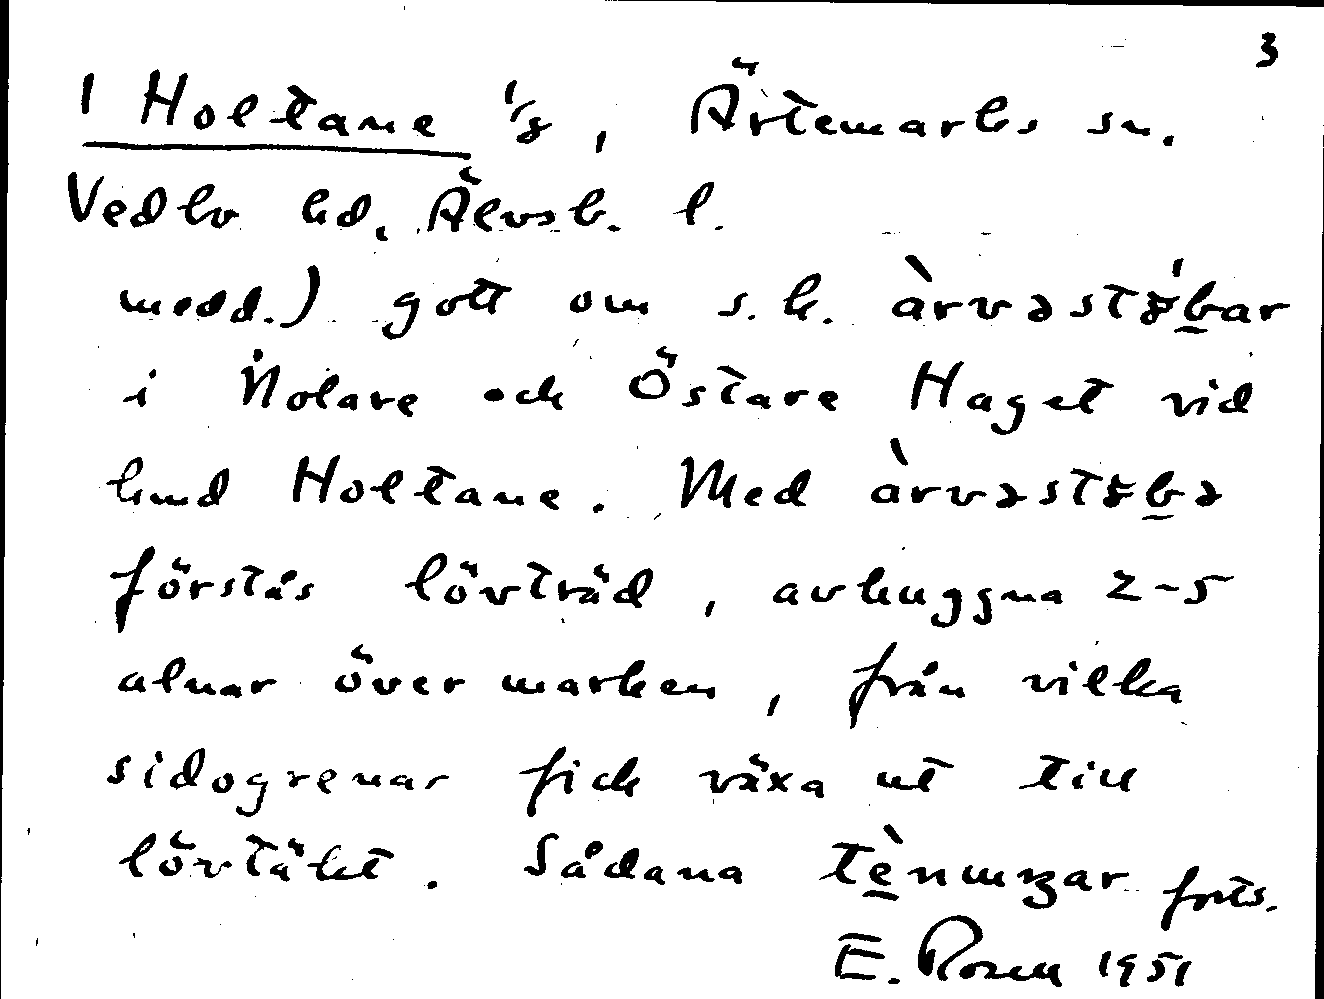 3
1 Holtane 1/8, Ärtemarks sn.
Vedbo hd. Älvsb. l.
medd.) gott om s.k. àrvəstɤ́bar
i Nolare och Östare Haget vid
kmd Holtane. Med àrvəstɤbə
förstås lövträd, avhuggna 2-5
alnar över marken, från vilka
sidogrenar fick växa ut till
lövtäkt. Sådana forts.
E. Rosen 1951